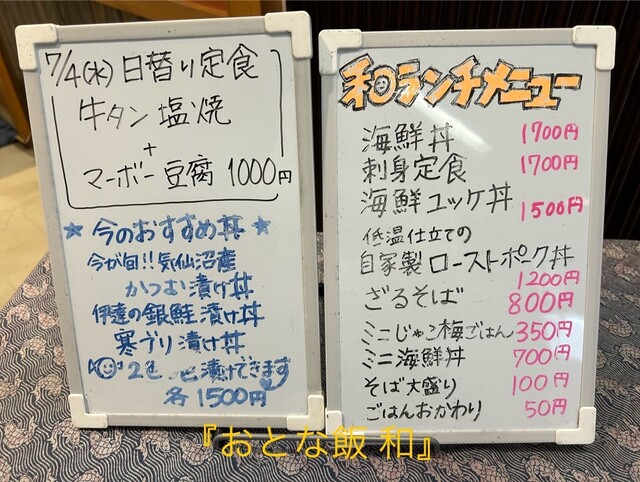 7/4(水) 日替り定食
牛タン塩焼
+
マーボー豆腐 1000円
★ 今のおすすめ丼 ★
今が旬!!気仙沼産
かつお漬け丼
伊達の銀鮭漬け丼
寒ブリ漬け丼
漬けできます
各1500円
和ランチメニュー
海鮮丼 1700円
刺身定食 1700円
海鮮ユッケ丼 1500円
低温仕立ての
自家製ローストポーク丼
1200円
ざるそば 800円
ミニじゃこ梅ごはん 350円
ミニ海鮮丼 700円
そば大盛り 100円
ごはんおかわり 50円
『おとな飯 和』